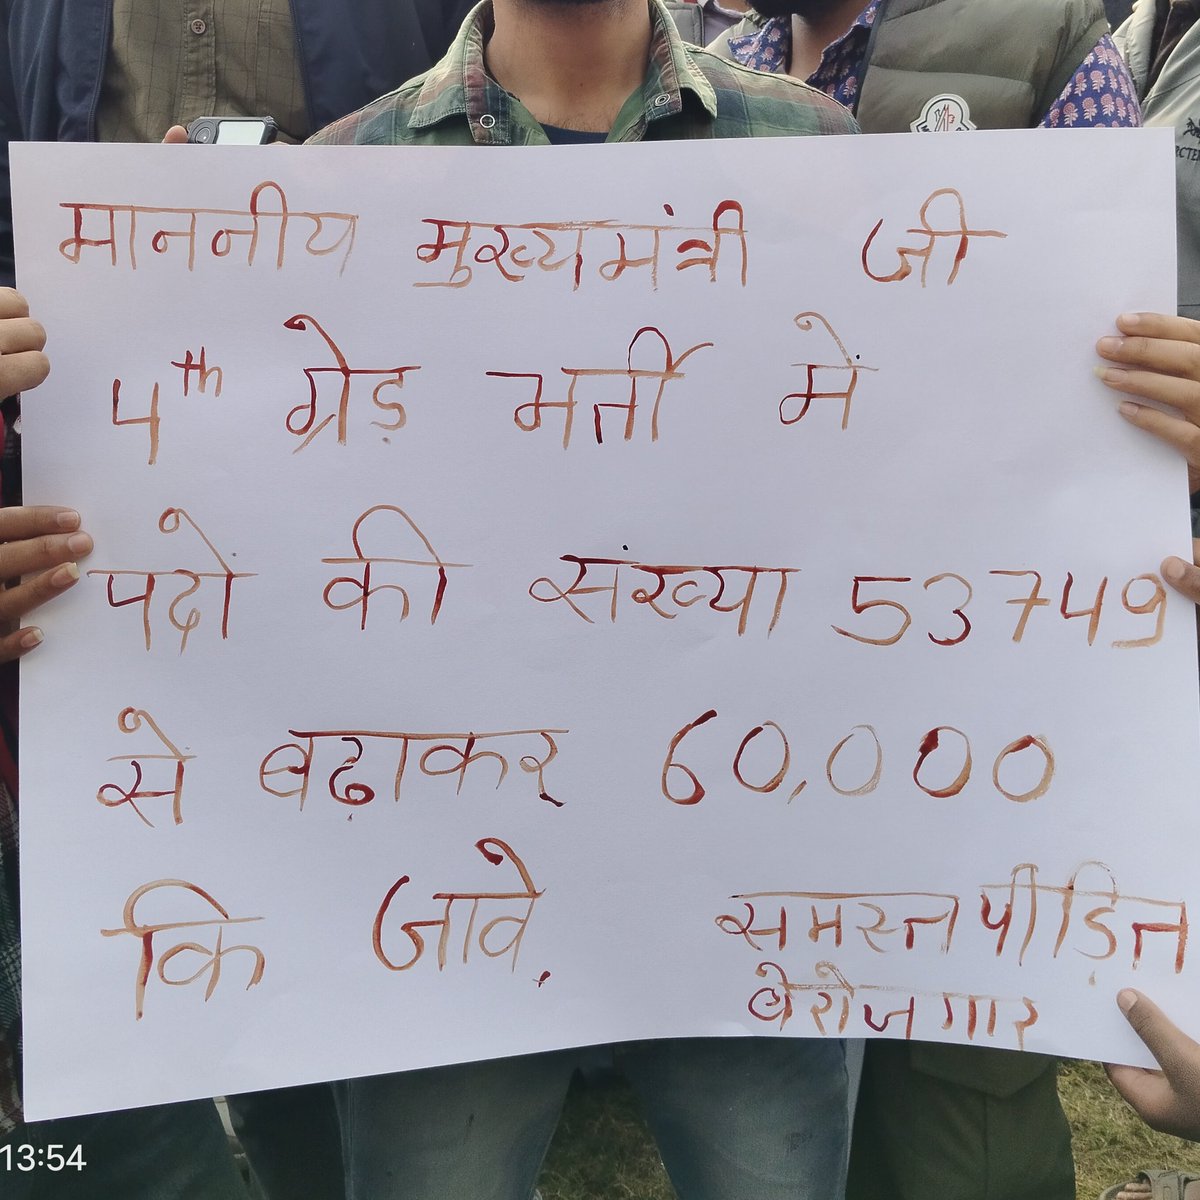 माननीय मुख्यमंत्री जी
4th ग्रेड भर्ती में
पदो की संख्या 53749
से बढ़ाकर 60,000
कि जावे.
समस्त पीड़ित
बेरोजगार
13:54